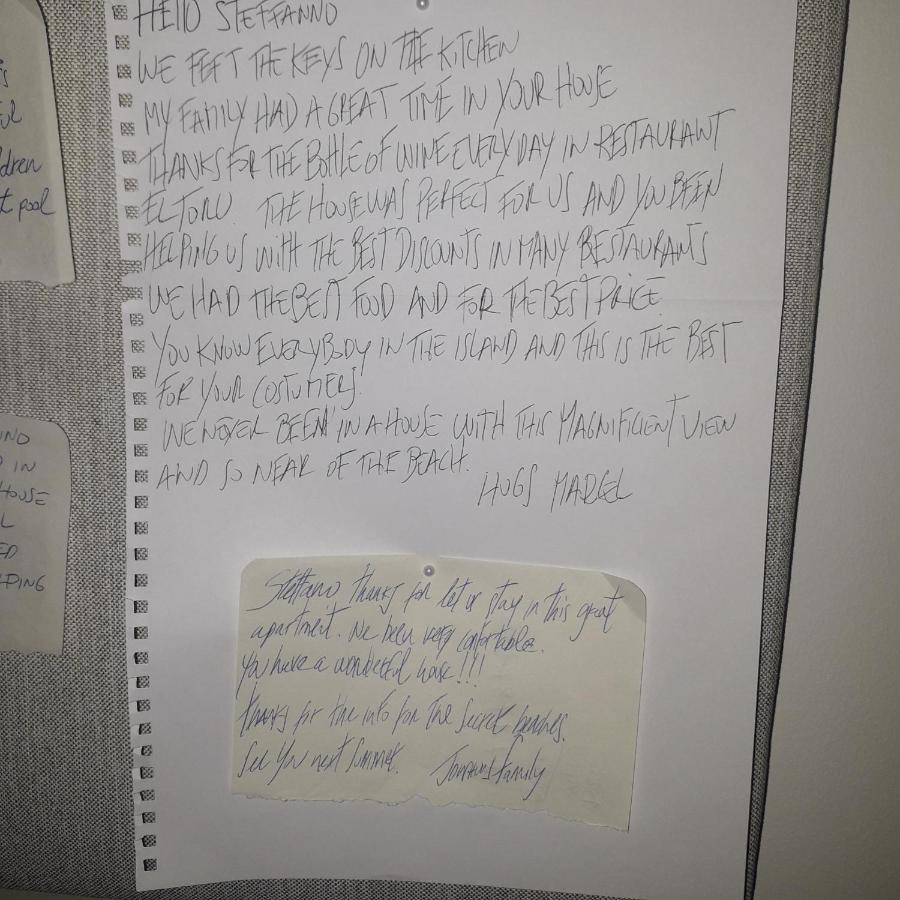 HELLO STEFFANNO
WE FEFT THE KEYS ON THE KITCHEN
MY FAMILY HAD A GREAT TIME IN YOUR HOUSE
THANKS FOR THE BOTTLE OF WINE EVERY DAY IN RESTAURANT
EL TORO THE HOUSE WAS PERFECT FOR US AND YOU BEEN
HELPING US WITH THE BEST DISCOUNTS IN MANY RESTAURANTS
WE HAD THE BEST FOOD AND FOR THE BEST PRICE.
YOU KNOW EVERYBODY IN THE ISLAND AND THIS IS THE BEST
FOR YOUR COSTUMERS!
WE NEVER BEEN IN A HOUSE WITH THIS MAGNIFICIENT VIEW
AND SO NEAR OF THE BEACH.
HUGS MARCEL
Steffano thanks for let us stay in this great
apartment. We been very confortable.
You have a wonderful house!!!
thanks for the info for the Secret beaches.
See You next Summer.
Family
dren
t pool
UND
IN
HOUSE
L
ED
PING